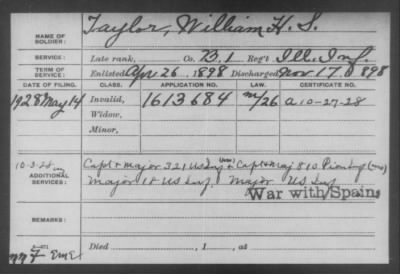 NAME OF SOLDIER: Taylor, William H. S.
SERVICE: Late rank, Co. B. 1 Reg't Ill. Inf.
TERM OF SERVICE: Enlisted Apr 26, 1898 Discharged Nov. 17, 1898
DATE OF FILING. CLASS. APPLICATION NO. LAW. CERTIFICATE NO.
1928 May 14 Invalid, 1613684 m/26 a 10-27-28
Widow,
Minor,
10-3-28
ADDITIONAL SERVICES: Capt + Major 321 US Inf + Capt + Maj 810 Pion Inf
Major 18 US Inf. Major US Inf
War with Spain
REMARKS:
Died , 1 , at